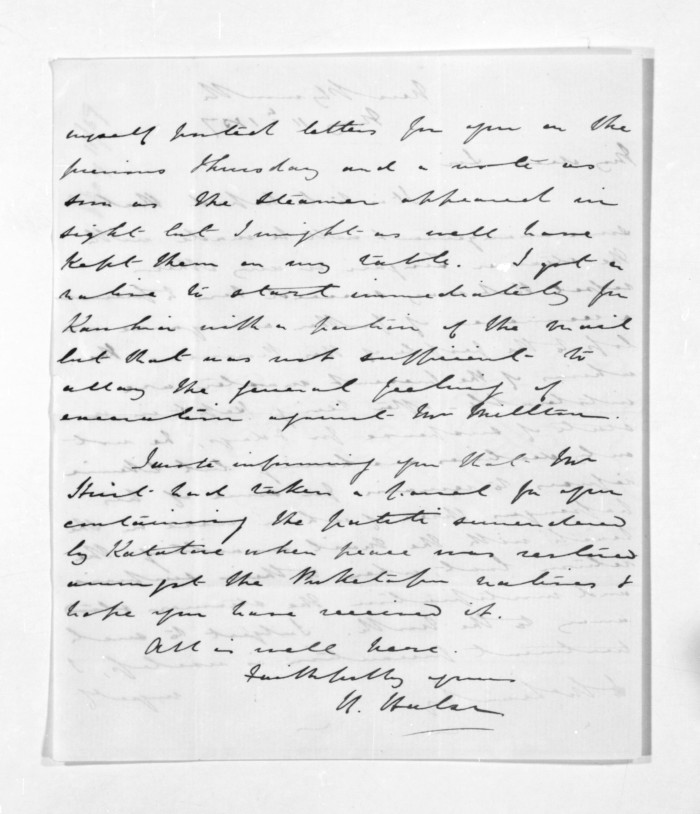 myself posted letters for you on the
previous Thursday and a note as
soon as the steamer appeared in
sight but I might as well have
kept them on my table. I got a
native to start immediately for
Kawhia with a portion of the mail
but that was not sufficient to
allay the general feeling of
execration against Mr Milltown.
I wrote informing you that Mr
Hirst had taken a parcel for you
containing the patiti surrendered
by Katatore when peace was restored
amongst the Puketapu natives &
hope you have received it.
All is well here.
Faithfully yours
H. Halse